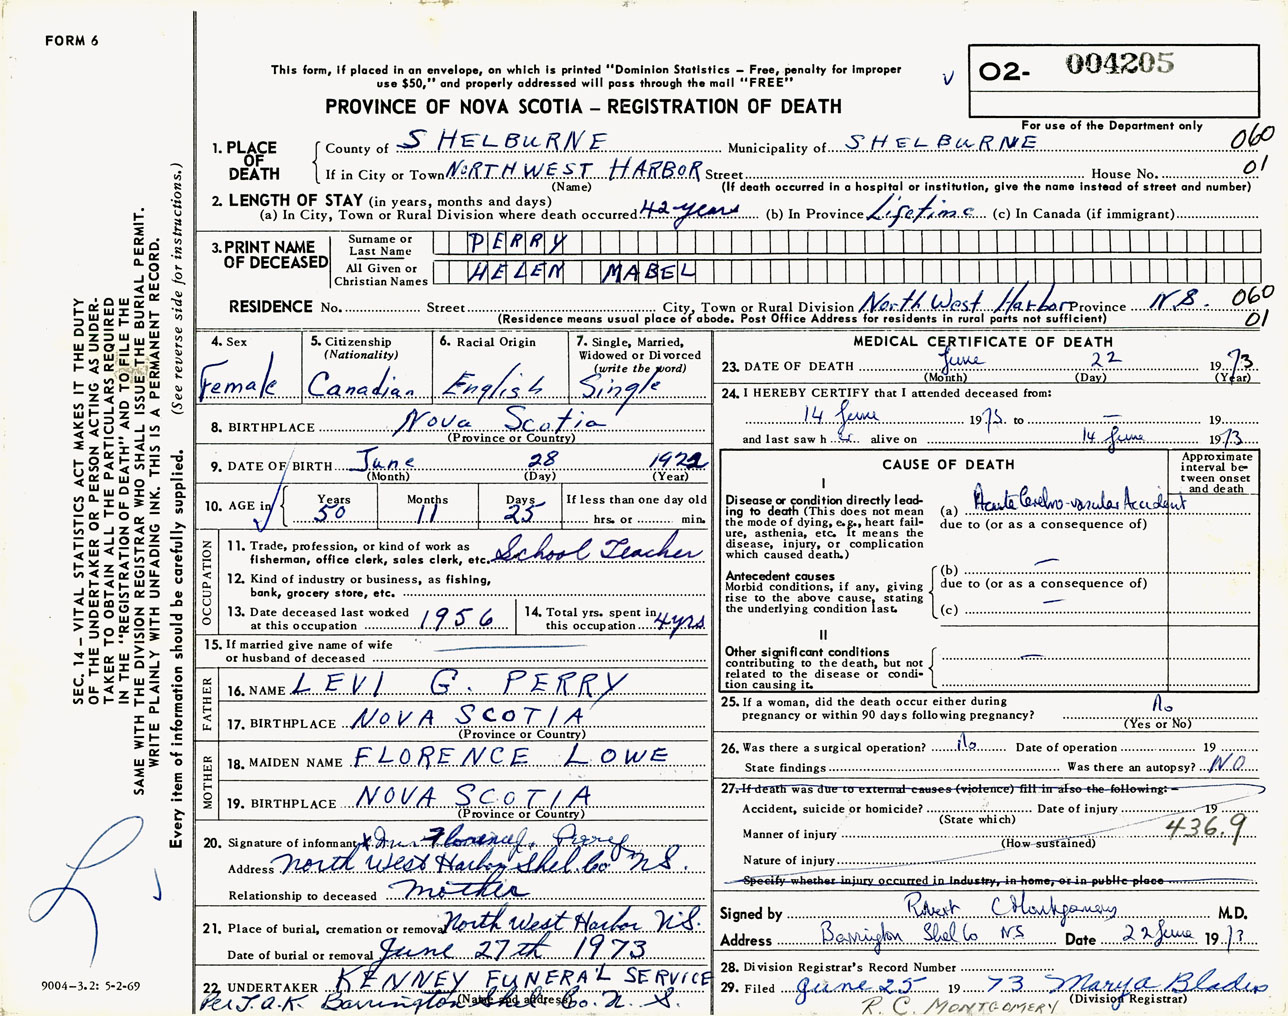 FORM 6
This form, if placed in an envelope, on which is printed "Dominion Statistics – Free, penalty for improper
use $50," and properly addressed will pass through the mail "FREE"
PROVINCE OF NOVA SCOTIA – REGISTRATION OF DEATH
02- 004205
For use of the Department only
SEC. 14 – VITAL STATISTICS ACT MAKES IT THE DUTY
OF THE UNDERTAKER OR PERSON ACTING AS UNDER-
TAKER TO OBTAIN ALL THE PARTICULARS REQUIRED
IN THE "REGISTRATION OF DEATH" AND TO FILE THE
SAME WITH THE DIVISION REGISTRAR WHO SHALL ISSUE THE BURIAL PERMIT.
WRITE PLAINLY WITH UNFADING INK. THIS IS A PERMANENT RECORD.
Every item of information should be carefully supplied. (See reverse side for instructions.)
1. PLACE OF DEATH
County of SHELBURNE Municipality of SHELBURNE 060
If in City or Town NORTH WEST HARBOR Street House No. 01
(Name) (If death occurred in a hospital or institution, give the name instead of street and number)
2. LENGTH OF STAY (in years, months and days)
(a) In City, Town or Rural Division where death occurred 42 years (b) In Province Lifetime (c) In Canada (if immigrant)
3. PRINT NAME OF DECEASED
Surname or Last Name PERRY
All Given or Christian Names HELEN MABEL
RESIDENCE No. Street City, Town or Rural Division North West Harbor Province N.S. 060
(Residence means usual place of abode. Post Office Address for residents in rural parts not sufficient) 01
4. Sex
Female
5. Citizenship
(Nationality)
Canadian
6. Racial Origin
English
7. Single, Married,
Widowed or Divorced
(write the word)
Single
8. BIRTHPLACE Nova Scotia
(Province or Country)
9. DATE OF BIRTH June 28 1922
(Month) (Day) (Year)
10. AGE in Years 50 Months 11 Days 25 If less than one day old
hrs. or min.
OCCUPATION
11. Trade, profession, or kind of work as
fisherman, office clerk, sales clerk, etc. School Teacher
12. Kind of industry or business, as fishing,
bank, grocery store, etc.
13. Date deceased last worked
at this occupation 1956
14. Total yrs. spent in
this occupation 4 yrs
15. If married give name of wife
or husband of deceased
FATHER
16. NAME LEVI G. PERRY
17. BIRTHPLACE NOVA SCOTIA
(Province or Country)
MOTHER
18. MAIDEN NAME FLORENCE LOWE
19. BIRTHPLACE NOVA SCOTIA
(Province or Country)
20. Signature of informant x Mrs Florence Perry
Address North West Harbor Shel Co N.S.
Relationship to deceased Mother
21. Place of burial, cremation or removal North West Harbor N.S.
Date of burial or removal June 27th 1973
22. UNDERTAKER KENNEY FUNERAL SERVICE
(Name and address)
Per J.A.K. Barrington Shel Co. N.S.
9004-3.2: 5-2-69
MEDICAL CERTIFICATE OF DEATH
23. DATE OF DEATH June 22 1973
(Month) (Day) (Year)
24. I HEREBY CERTIFY that I attended deceased from:
14 June 1973 to – 19
and last saw h er alive on 14 June 1973
CAUSE OF DEATH
Approximate
interval be-
tween onset
and death
I
Disease or condition directly lead-
ing to death (This does not mean
the mode of dying, e.g., heart fail-
ure, asthenia, etc. It means the
disease, injury, or complication
which caused death.)
(a) Acute Cerebro-vascular Accident
due to (or as a consequence of)
Antecedent causes
Morbid conditions, if any, giving
rise to the above cause, stating
the underlying condition last.
(b) –
due to (or as a consequence of)
(c) –
II
Other significant conditions
contributing to the death, but not
related to the disease or condi-
tion causing it.
–
25. If a woman, did the death occur either during
pregnancy or within 90 days following pregnancy? No
(Yes or No)
26. Was there a surgical operation? No Date of operation 19
State findings Was there an autopsy? NO
27. If death was due to external causes (violence) fill in also the following: –
Accident, suicide or homicide? Date of injury 19
(State which)
436.9
Manner of injury
(How sustained)
Nature of injury
Specify whether injury occurred in industry, in home, or in public place
Signed by Robert C Montgomery M.D.
Address Barrington Shel Co NS Date 22 June 1973
28. Division Registrar's Record Number
29. Filed June 25 1973 Mary A Blades
(Division Registrar)
R. C. MONTGOMERY